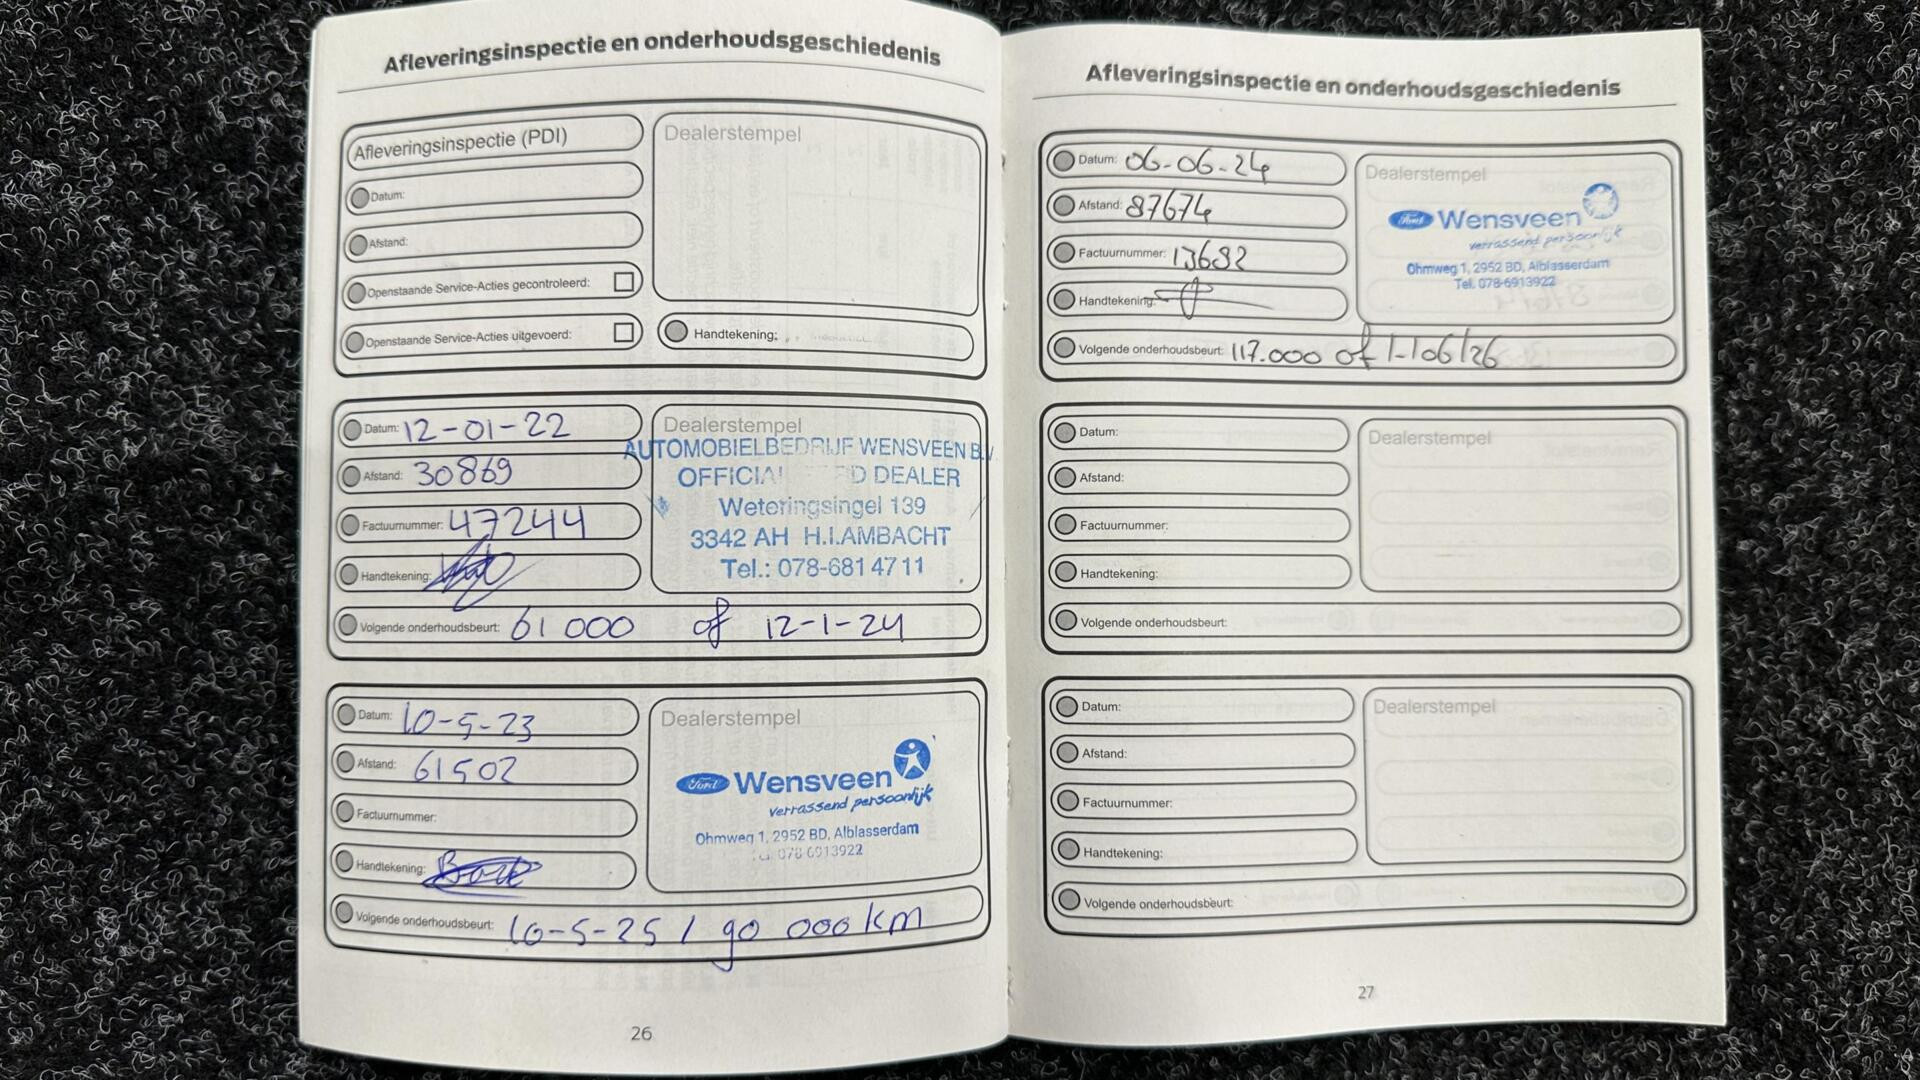 Afleveringsinspectie en onderhoudsgeschiedenis
Afleveringsinspectie (PDI)
Dealerstempel
Datum:
Afstand:
Openstaande Service-Acties gecontroleerd:
Openstaande Service-Acties uitgevoerd:
Handtekening:
Datum: 12-01-22
Afstand: 30869
Factuurnummer: 47244
Handtekening:
Dealerstempel
AUTOMOBIELBEDRIJF WENSVEEN B.V.
OFFICIAL D DEALER
Weteringsingel 139
3342 AH H.I.AMBACHT
Tel.: 078-681 47 11
Volgende onderhoudsbeurt: 61 000 of 12-1-24
Datum: 10-5-23
Afstand: 61502
Factuurnummer:
Handtekening:
Dealerstempel
Ford Wensveen
verrassend persoonlijk
Ohmweg 1, 2952 BD, Alblasserdam
078 6913922
Volgende onderhoudsbeurt: 10-5-25 / 90 000 km
26
Afleveringsinspectie en onderhoudsgeschiedenis
Datum: 06-06-24
Afstand: 87674
Factuurnummer: 13692
Handtekening:
Dealerstempel
Ford Wensveen
verrassend persoonlijk
Ohmweg 1, 2952 BD, Alblasserdam
Tel. 078-6913922
Volgende onderhoudsbeurt: 117.000 of
Datum:
Afstand:
Factuurnummer:
Handtekening:
Dealerstempel
Volgende onderhoudsbeurt:
Datum:
Afstand:
Factuurnummer:
Handtekening:
Dealerstempel
Volgende onderhoudsbeurt:
27